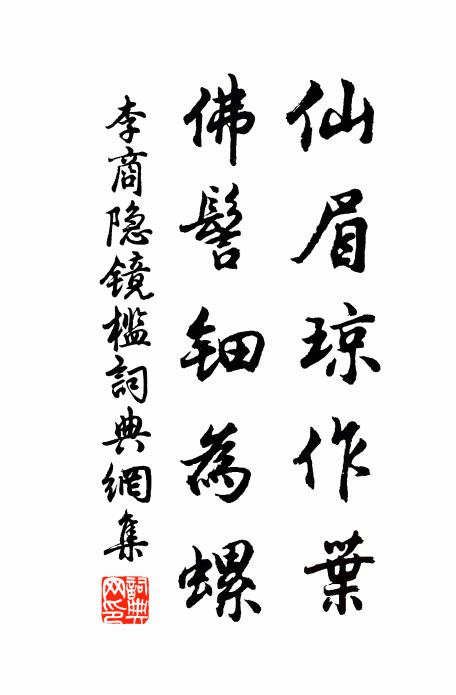 仙眉琼作葉
佛髻钿為螺
李商隐镜槛詞典網集
詞典網印